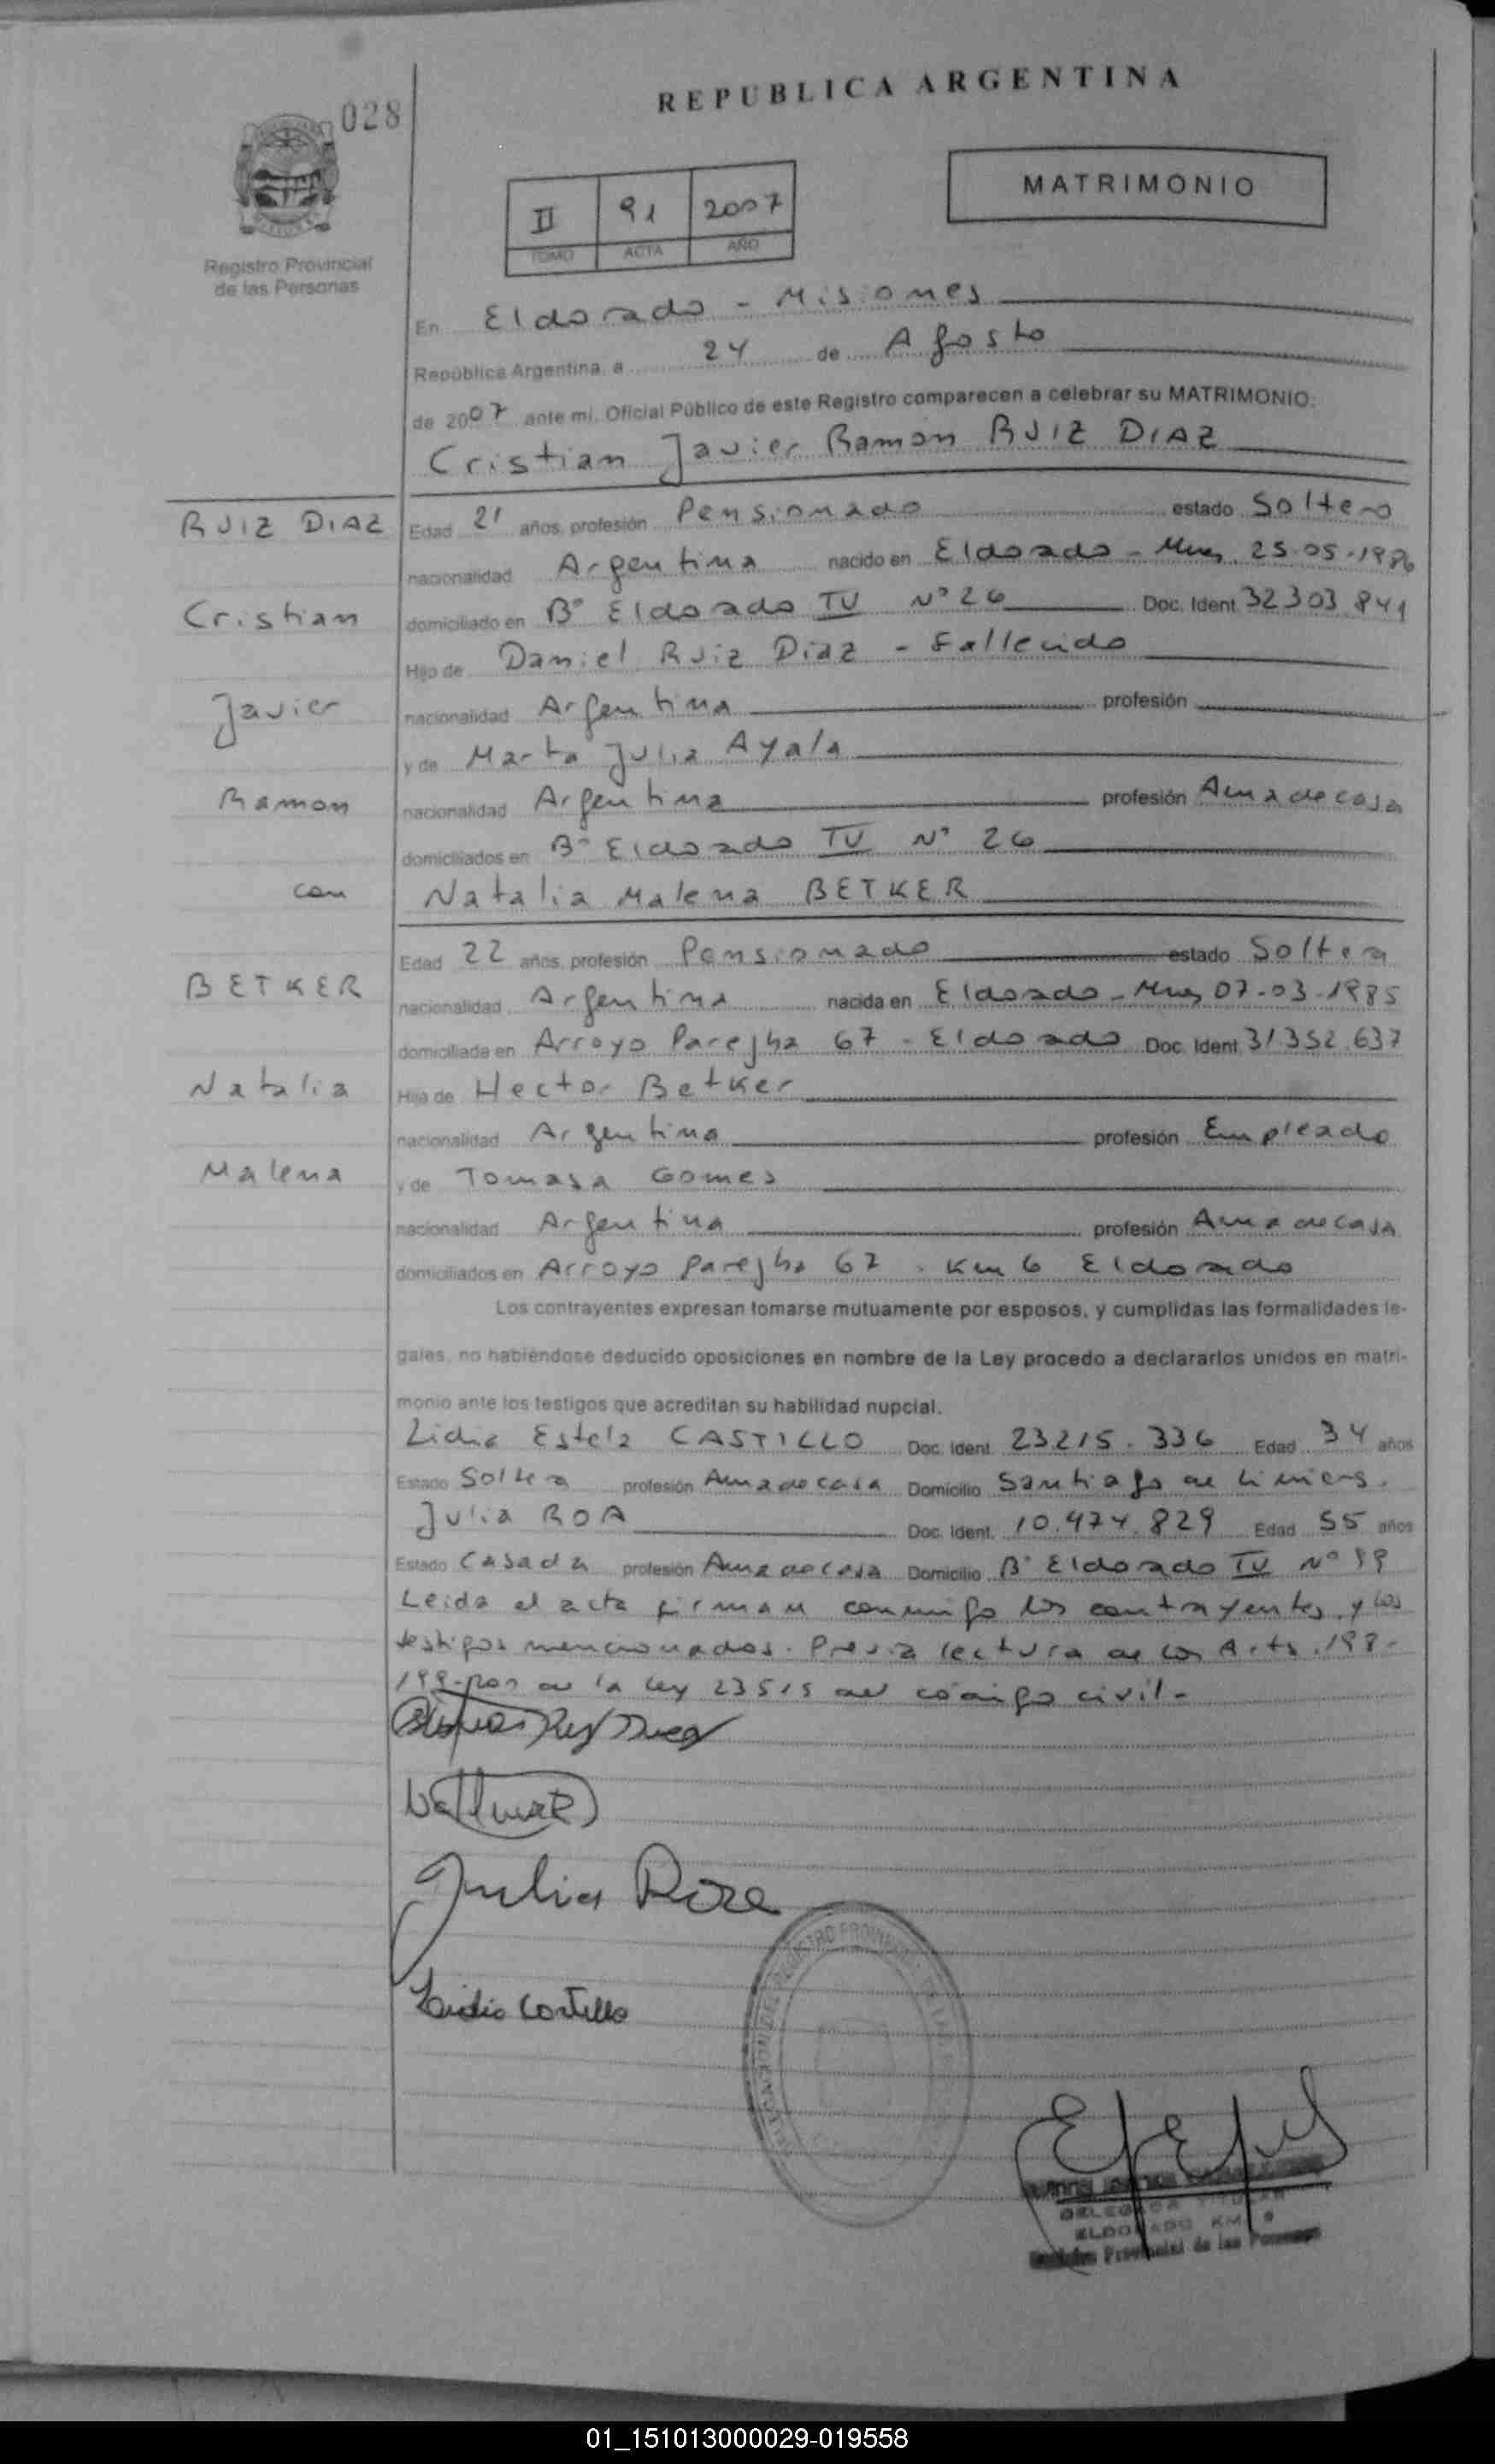 REPUBLICA ARGENTINA
028
MATRIMONIO
II 91 2007
TOMO ACTA AÑO
Registro Provincial
de las Personas
En Eldorado - Misiones
República Argentina, a 24 de Agosto
de 2007 ante mi, Oficial Público de este Registro comparecen a celebrar su MATRIMONIO:
Cristian Javier Ramón RUIZ DIAZ
RUIZ DIAZ Edad 21 años, profesión Pensionado estado Soltero
nacionalidad Argentina nacido en Eldorado - Mnes 25-05-1986
Cristian domiciliado en B° Eldorado IV N° 26 Doc. Ident. 32303841
Hijo de Daniel Ruiz Diaz - Fallecido
Javier nacionalidad Argentina profesión
y de Marta Julia Ayala
Ramon nacionalidad Argentina profesión Ama de casa
domiciliados en B° Eldorado IV N° 26
con Natalia Malena BETKER
Edad 22 años, profesión Pensionado estado Soltera
BETKER nacionalidad Argentina nacida en Eldorado - Mnes 07-03-1985
domiciliada en Arroyo Parejha 67 - Eldorado Doc. Ident. 31352.637
Natalia Hija de Hector Betker
nacionalidad Argentina profesión Empleado
Malena y de Tomasa Gomes
nacionalidad Argentina profesión Ama de casa
domiciliados en Arroyo Parejha 67 . Km 6 Eldorado
Los contrayentes expresan tomarse mutuamente por esposos, y cumplidas las formalidades le-
gales, no habiéndose deducido oposiciones en nombre de la Ley procedo a declararlos unidos en matri-
monio ante los testigos que acreditan su habilidad nupcial.
Lidia Estela CASTILLO Doc. Ident. 23.215.336 Edad 34 años
Estado Soltera profesión Ama de casa Domicilio Santiago de Liniers.
Julia ROA Doc. Ident. 10.474.829 Edad 55 años
Estado Casada profesión Ama de casa Domicilio B° Eldorado IV N° 99
Leida el acta firman conmigo los contrayentes y los
testigos mencionados. Previa lectura de los Arts. 198-
199-200 de la Ley 23515 del código civil-
Julia Roza
Lidia Castillo
DELEGADA TITULAR
ELDORADO KM. 9
Provincial de las Personas
01_151013000029-019558